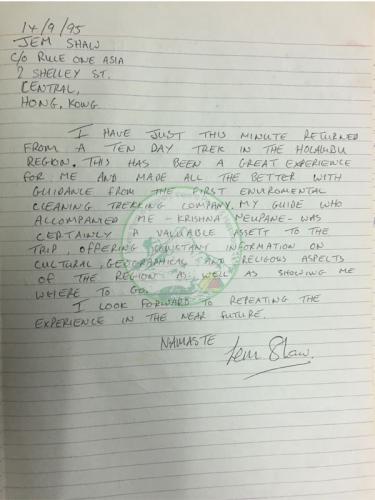 14/9/95
JEM SHAW
C/O RULE ONE ASIA
2 SHELLEY ST.
CENTRAL,
HONG. KONG
I HAVE JUST THIS MINUTE RETURNED
FROM A TEN DAY TREK IN THE HOLAMBU
REGION. THIS HAS BEEN A GREAT EXPERIENCE
FOR ME AND MADE ALL THE BETTER WITH
GUIDANCE FROM THE FIRST ENVIROMENTAL
CLEANING TREKKING COMPANY. MY GUIDE WHO
ACCOMPANIED ME - KRISHNA NEUPANE - WAS
CERTAINLY A VALUABLE ASSETT TO THE
TRIP, OFFERING CONSTANT INFORMATION ON
CULTURAL, GEOGRAPHICAL AND RELIGOUS ASPECTS
OF THE REGION AS WELL AS SHOWING ME
WHERE TO GO.
I LOOK FORWARD TO REPEATING THE
EXPERIENCE IN THE NEAR FUTURE.
NAMASTE Jem Shaw.